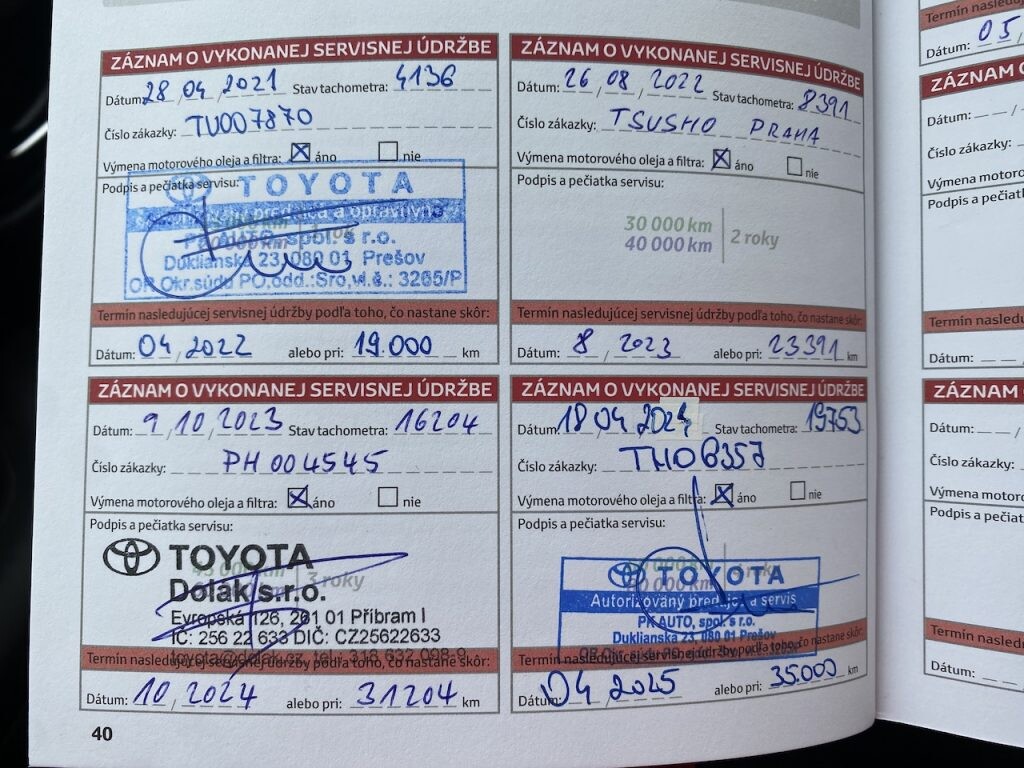 ZÁZNAM O VYKONANEJ SERVISNEJ ÚDRŽBE
Dátum: 28 / 04 / 2021 Stav tachometra: 4136
Číslo zákazky: TU007870
Výmena motorového oleja a filtra: ☒ áno ☐ nie
Podpis a pečiatka servisu:
TOYOTA
predajca a opravovňa
PK AUTO, spol. s r.o.
Duklianska 23, 080 01 Prešov
OR Okr.súdu PO,odd.:Sro,vl.č.: 3265/P
Termín nasledujúcej servisnej údržby podľa toho, čo nastane skôr:
Dátum: 04 / 2022 alebo pri: 19.000 km
ZÁZNAM O VYKONANEJ SERVISNEJ ÚDRŽBE
Dátum: 26 / 08 / 2022 Stav tachometra: 8391
Číslo zákazky: TSUSHO PRAHA
Výmena motorového oleja a filtra: ☒ áno ☐ nie
Podpis a pečiatka servisu:
30 000 km
40 000 km
2 roky
Termín nasledujúcej servisnej údržby podľa toho, čo nastane skôr:
Dátum: 8 / 2023 alebo pri: 23391 km
ZÁZNAM O VYKONANEJ SERVISNEJ ÚDRŽBE
Dátum: 9 / 10 / 2023 Stav tachometra: 16204
Číslo zákazky: PH004545
Výmena motorového oleja a filtra: ☒ áno ☐ nie
Podpis a pečiatka servisu:
TOYOTA
45 000 km
3 roky
Dolák s.r.o.
Evropská 126, 261 01 Příbram I
IČ: 256 22 633 DIČ: CZ25622633
toyota@dolak.cz, tel.: 318 632 098-9
Termín nasledujúcej servisnej údržby podľa toho, čo nastane skôr:
Dátum: 10 / 2024 alebo pri: 31204 km
ZÁZNAM O VYKONANEJ SERVISNEJ ÚDRŽBE
Dátum: 18 04 2024 Stav tachometra: 19753
Číslo zákazky:
Výmena motorového oleja a filtra: ☒ áno ☐ nie
Podpis a pečiatka servisu:
TOYOTA
Autorizovaný predajca a servis
PK AUTO, spol. s r.o.
Duklianska 23, 080 01 Prešov
Termín nasledujúcej servisnej údržby podľa toho, čo nastane skôr:
Dátum: 04 2025 alebo pri: 35.000 km
40
Termín
Dátum: 05 /
ZÁZNAM
Dátum:
Číslo zákazky:
Výmena
Podpis a
Termín
Dátum:
ZÁZNAM
Dátum:
Číslo zákazky:
Výmena
Podpis a
Termín
Dátum: